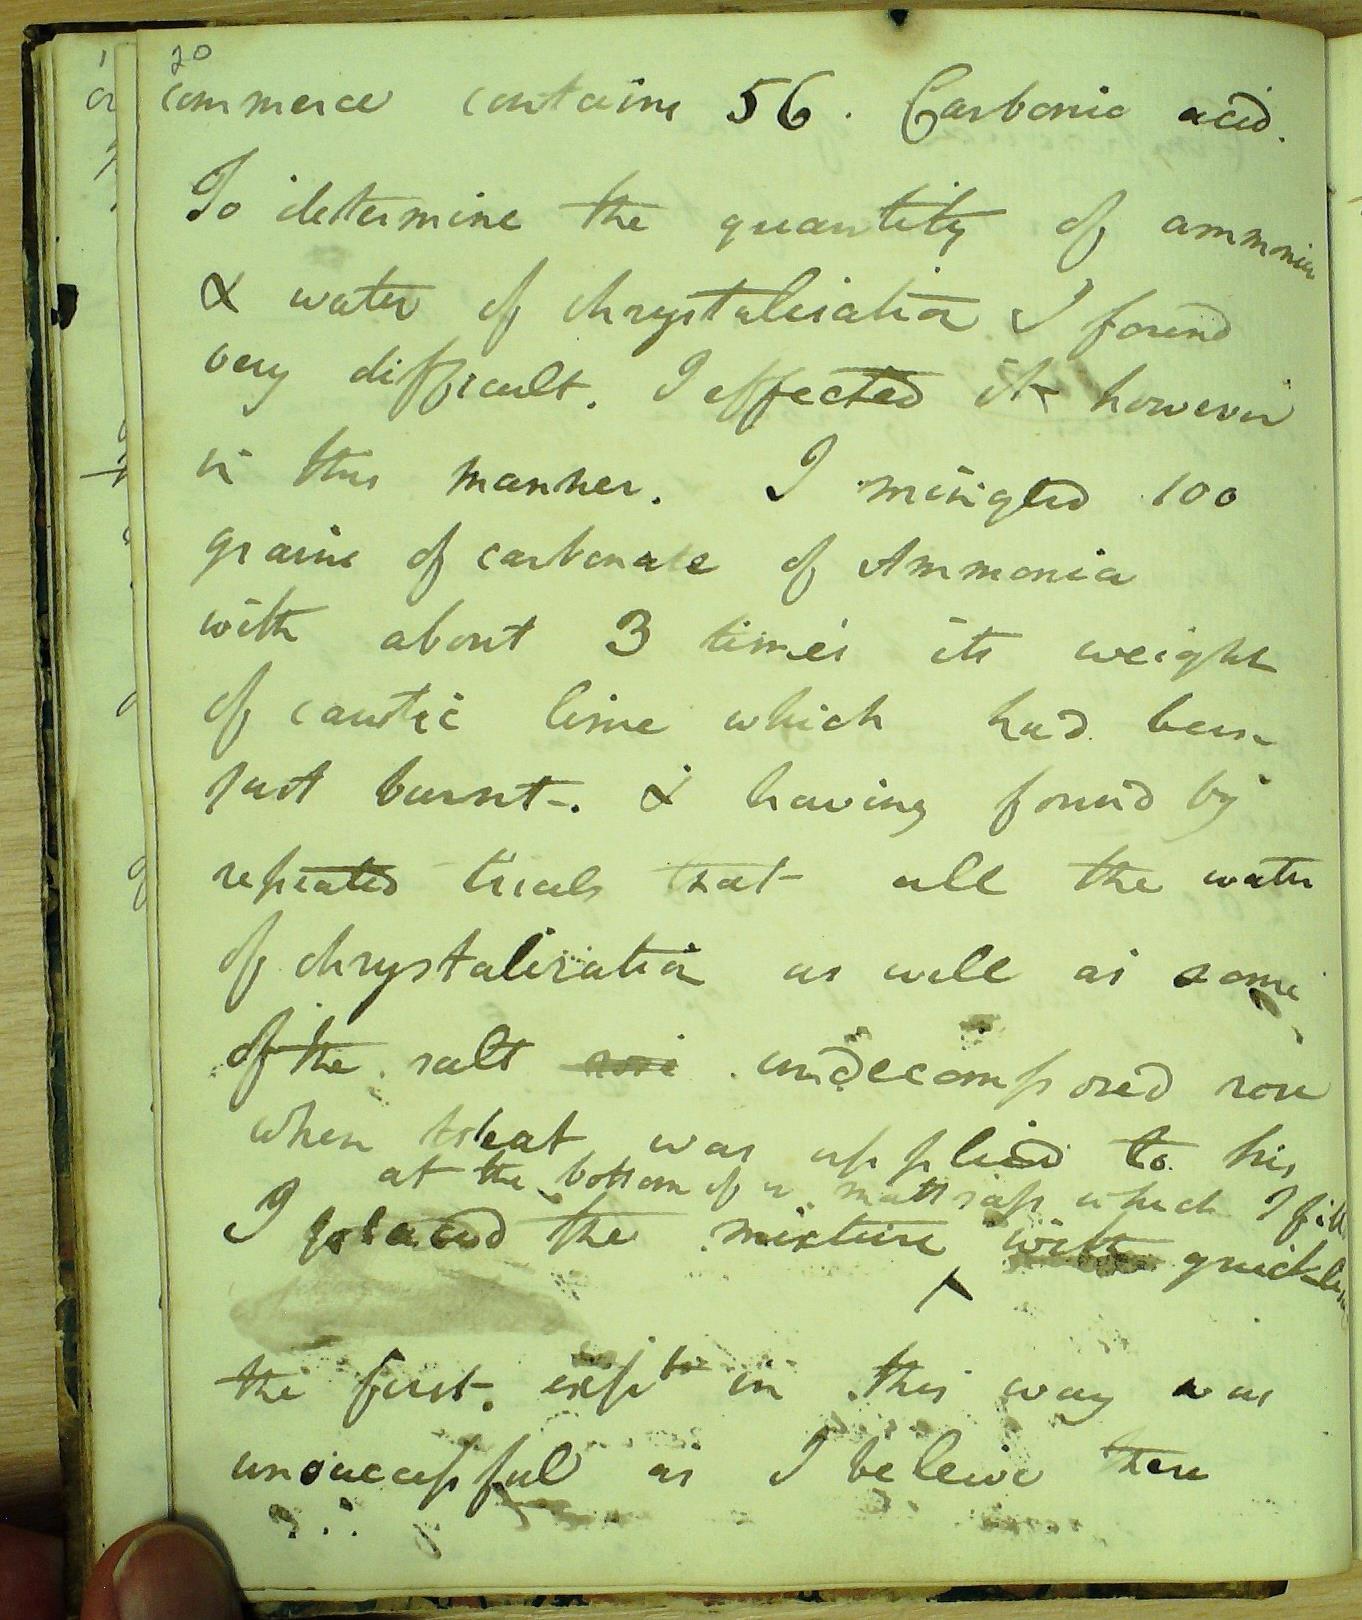 20
commerce contains 56. Carbonic acid.
To determine the quantity of ammonia
& water of chrystalisation I found
very difficult. I effected it however
in this manner. I mingled 100
grains of carbonate of Ammonia
with about 3 times its weight
of caustic lime which had been
just burnt. & having found by
repeated trials that all the water
of chrystalisation as well as some
of the salt rose undecomposed rose
when heat was applied to his
at the bottom of a mattrass which I fill
I placed the mixture with quicklime
the first expt in this way was
unsuccessful as I beleive there